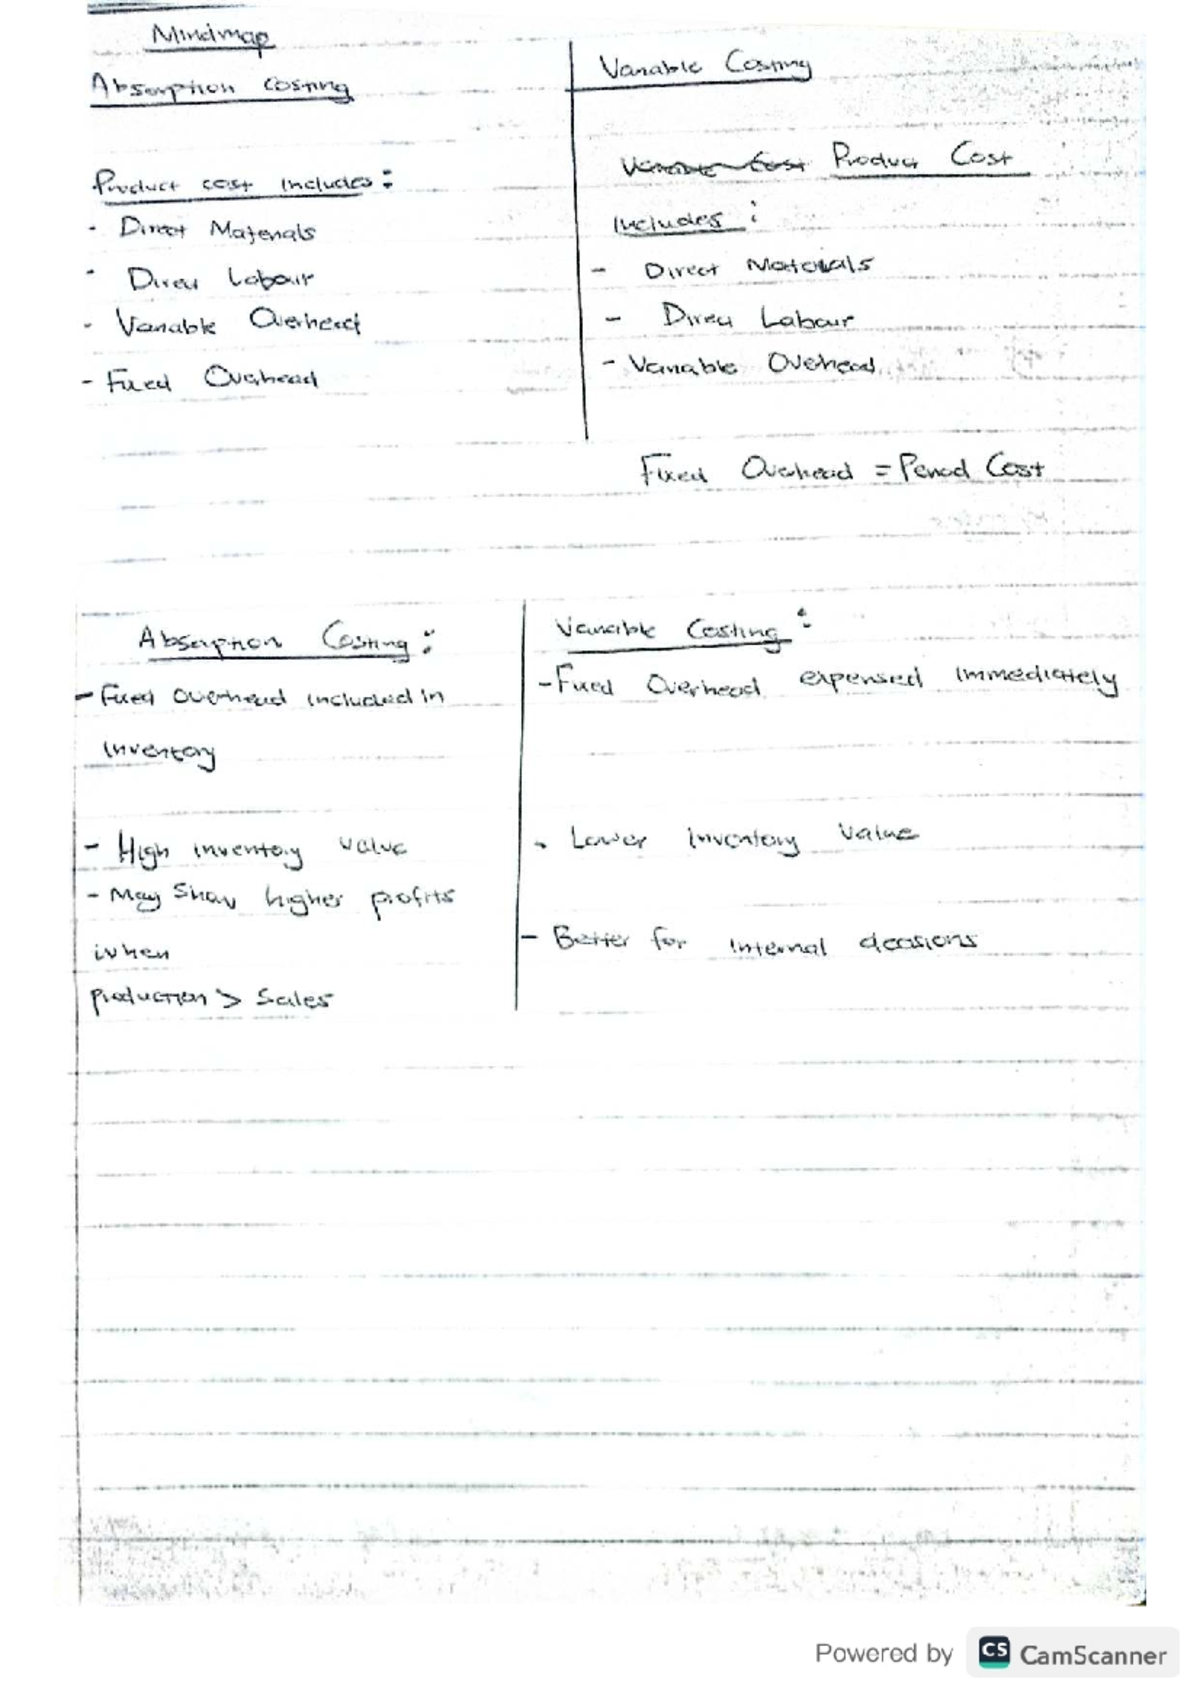 Mindmap
Absorption costing
Product cost includes:
- Direct Materials
- Direct Labour
- Variable Overhead
- Fixed Overhead
Variable Costing
Variable Cost Product Cost
Includes:
- Direct Materials
- Direct Labour
- Variable Overhead
Fixed Overhead = Period Cost
Absorption Costing:
- Fixed overhead included in
inventory
- High inventory value
- May Show higher profits
when
production > Sales
Variable Costing:
- Fixed Overhead expensed immediately
- Lower inventory value
- Better for internal decisions
Powered by CS CamScanner